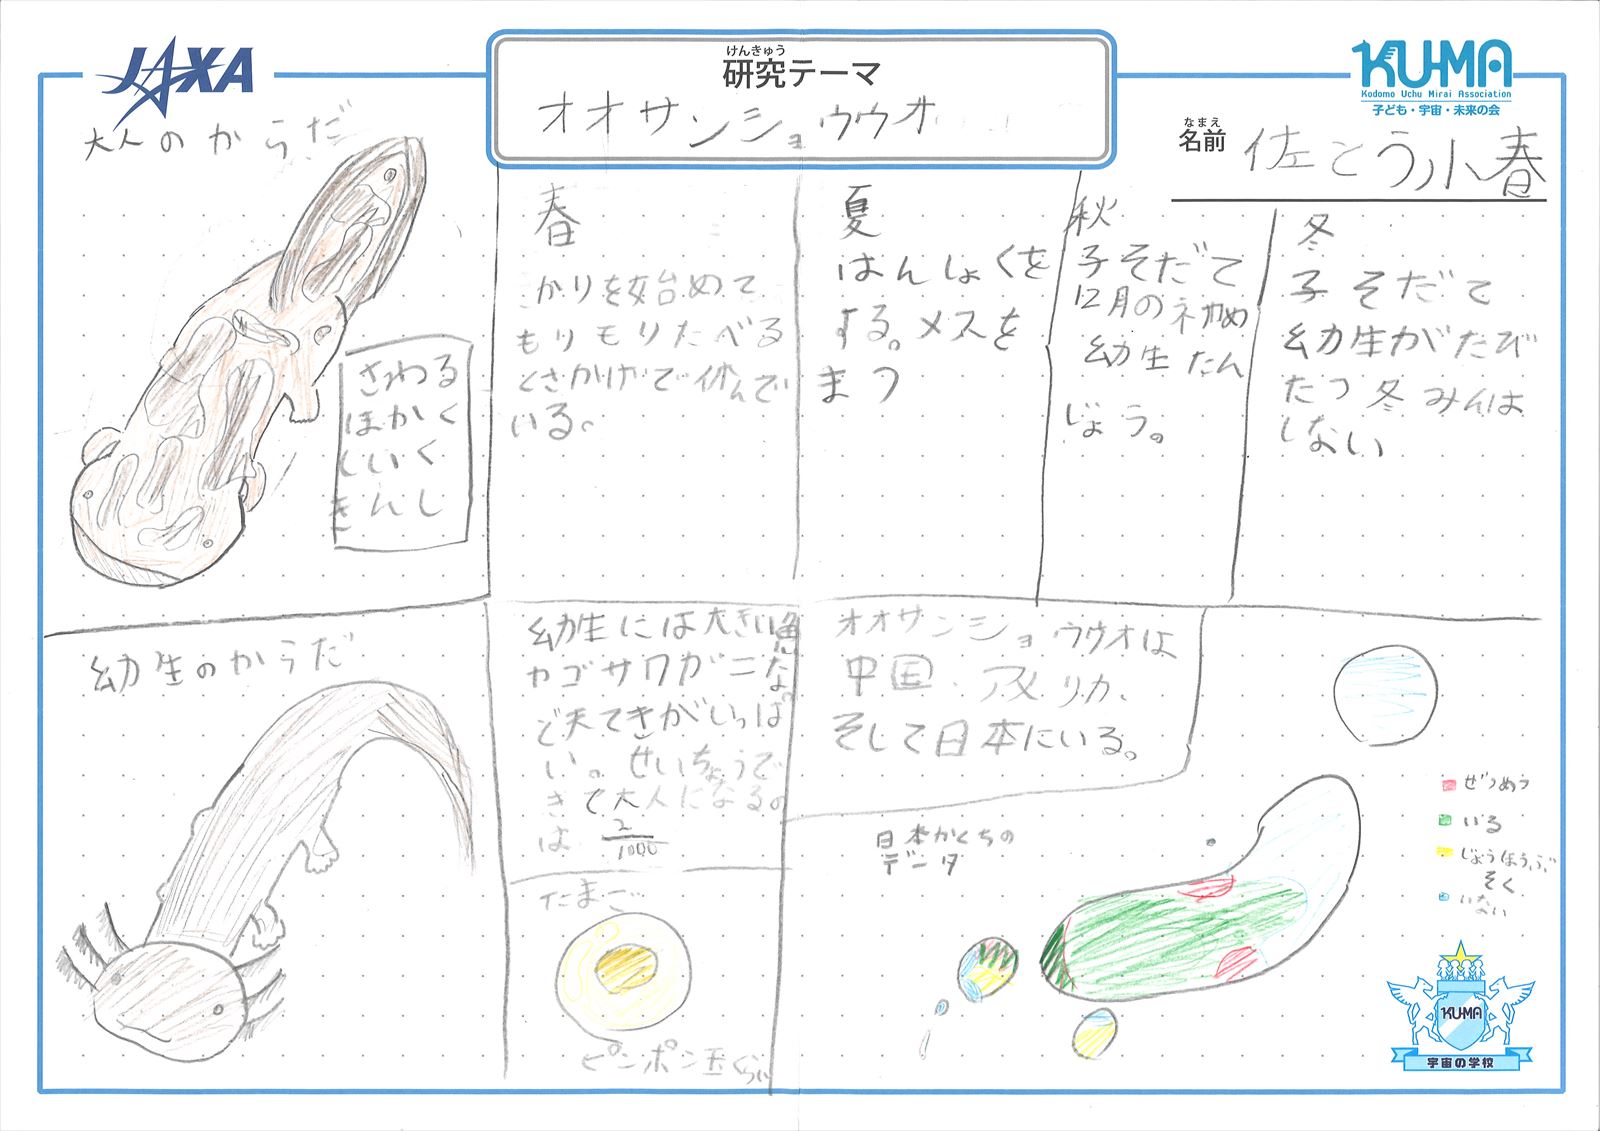 JAXA
けんきゅう
研究テーマ
オオサンショウウオ
KU-MA
Kodomo Uchu Mirai Association
子ども・宇宙・未来の会
なまえ
名前
佐とう小春
大人のからだ
さわる
ほかく
しいく
きんし
春
かりを始めて
もりもりたべる
くさかげで休んで
いる。
夏
はんしょくを
する。メスを
まつ
秋
子そだて
12月の初め
幼生たん
じょう。
冬
子そだて
幼生がたび
たつ冬みんは
しない
幼生のからだ
幼生には大きい魚
ヤゴサワガニな
ど天てきがいっぱ
い。せいちょうで
きて大人になるの
は 2/1000
たまご
ピンポン玉くらい
オオサンショウウオは
中国、アメリカ、
そして日本にいる。
日本かくちの
データ
ぜつめつ
いる
じょうほうぶ
そく
いない
KU-MA
宇宙の学校